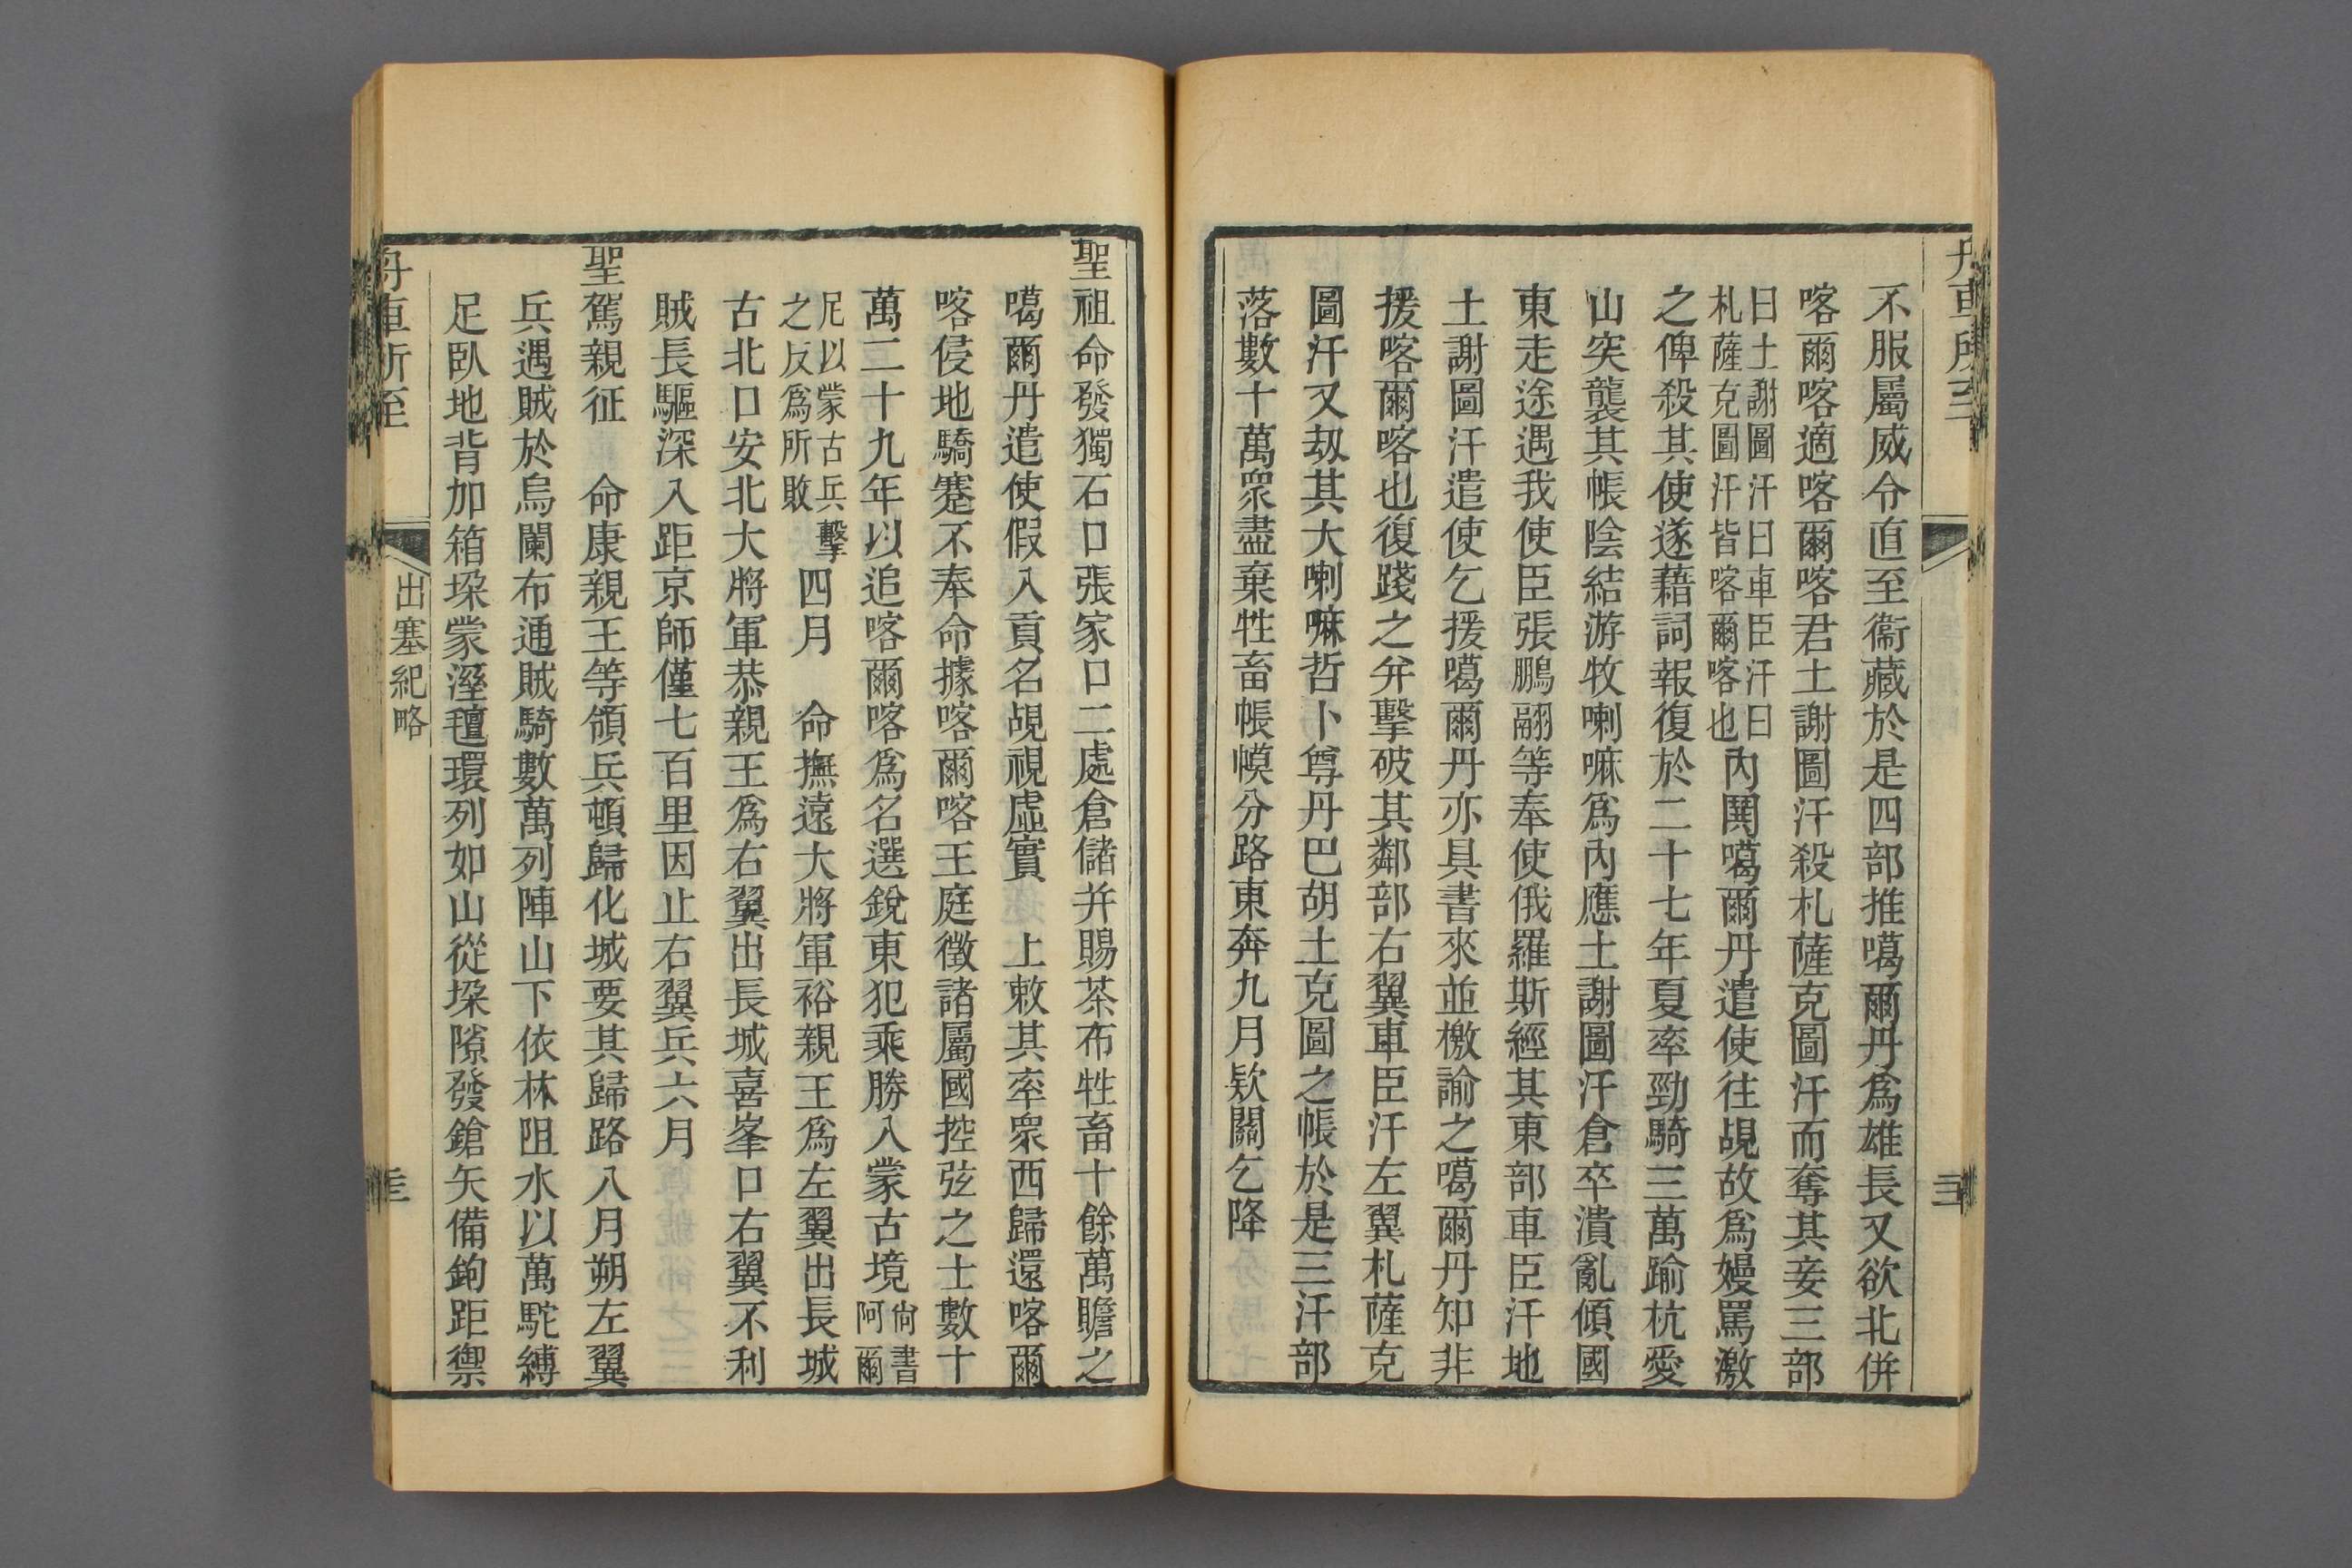 不服屬威令直至衞藏於是四部推噶爾丹爲雄長又欲北併
喀爾喀適喀爾喀君土謝圖汗殺札薩克圖汗而奪其妾三部
曰土謝圖汗曰車臣汗曰
札薩克圖汗皆喀爾喀也
內鬨噶爾丹遣使往覘故爲嫚罵激
之俾殺其使遂藉詞報復於二十七年夏率勁騎三萬踰杭愛
山突襲其帳陰結游牧喇嘛爲內應土謝圖汗倉卒潰亂傾國
東走途遇我使臣張鵬翮等奉使俄羅斯經其東部車臣汗地
土謝圖汗遣使乞援噶爾丹亦具書來並檄諭之噶爾丹知非
援喀爾喀也復踐之弁擊破其鄰部右翼車臣汗左翼札薩克
圖汗又刼其大喇嘛哲卜尊丹巴胡土克圖之帳於是三汗部
落數十萬眾盡棄牲畜帳幙分路東奔九月欵關乞降
聖祖命發獨石口張家口二處倉儲并賜茶布牲畜十餘萬贍之
噶爾丹遣使假入貢名覘視虛實　上敕其率眾西歸還喀爾
喀侵地驕蹇不奉命據喀爾喀王庭徵諸屬國控弦之士數十
萬二十九年以追喀爾喀爲名選銳東犯乘勝入蒙古境
尙書
阿爾
尼以蒙古兵擊
之反爲所敗
四月　命撫遠大將軍裕親王爲左翼出長城
古北口安北大將軍恭親王爲右翼出長城喜峯口右翼不利
賊長驅深入距京師僅七百里因止右翼兵六月
聖駕親征　命康親王等領兵頓歸化城要其歸路八月朔左翼
兵遇賊於烏闌布通賊騎數萬列陣山下依林阻水以萬駝縛
足臥地背加箱垜蒙溼氊環列如山從垜隙發鎗矢備鉤距禦
舟車所至
出塞紀略